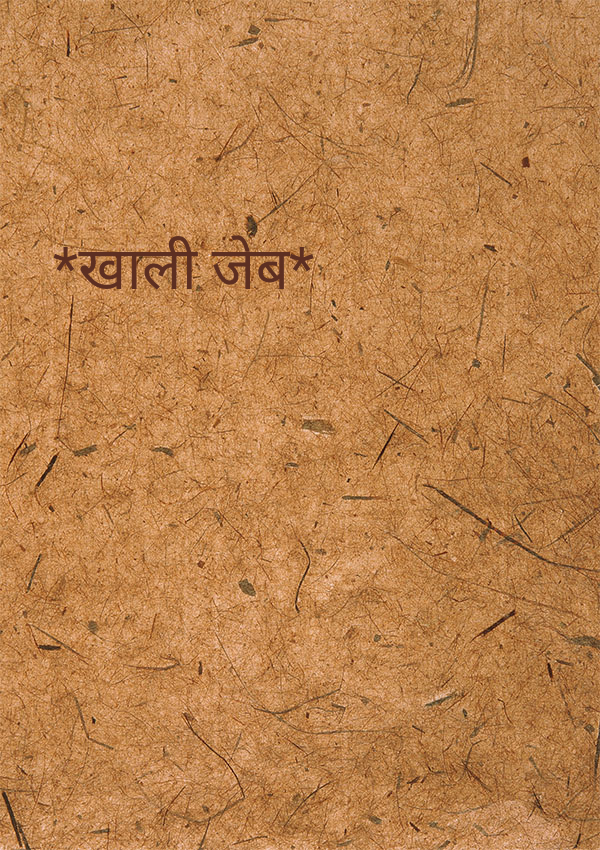 *खाली जेब*